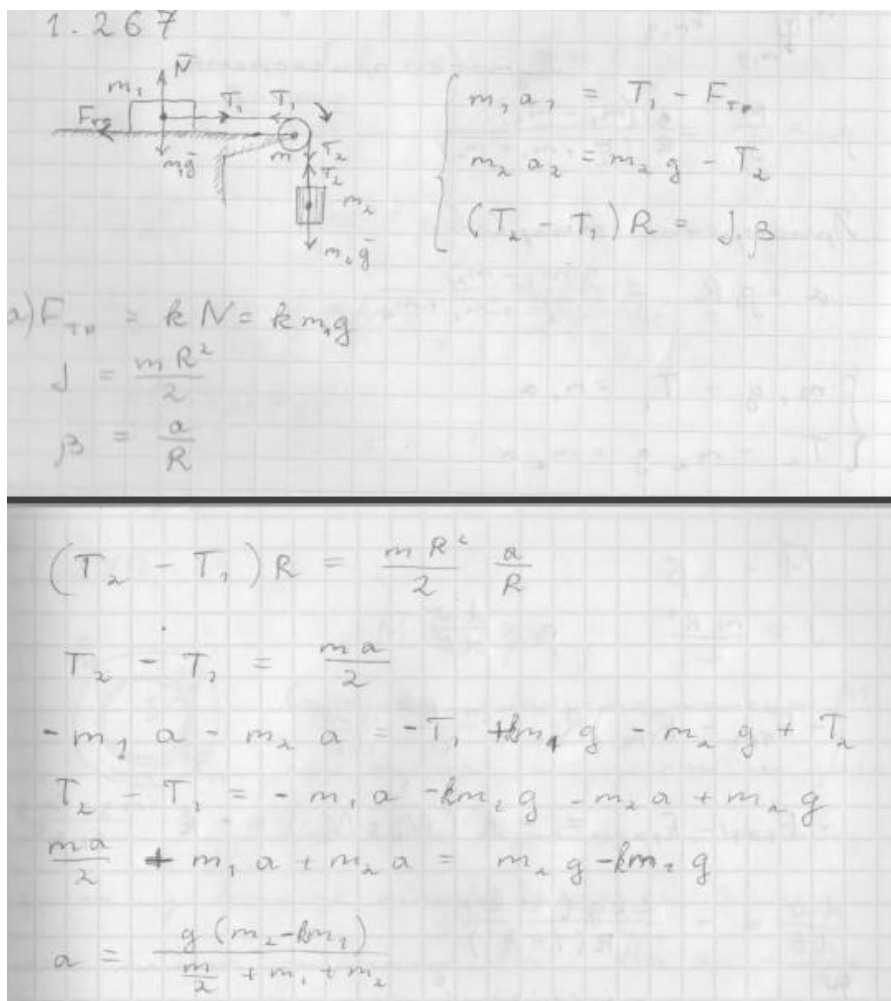 1.267
N̄
m₁
T₁ T₁
F_тр
m₁ḡ
m
T₂
T₂
m₂
m₂ḡ
m₁a₁ = T₁ - F_тр
m₂a₂ = m₂g - T₂
(T₂ - T₁)R = Jβ
а) F_тр = kN = km₁g
J = mR²/2
β = a/R
(T₂ - T₁)R = mR²/2 a/R
T₂ - T₁ = ma/2
-m₁a - m₂a = -T₁ + km₁g - m₂g + T₂
T₂ - T₁ = -m₁a - km₁g - m₂a + m₂g
ma/2 + m₁a + m₂a = m₂g - km₁g
a = g(m₂ - km₁) / (m/2 + m₁ + m₂)